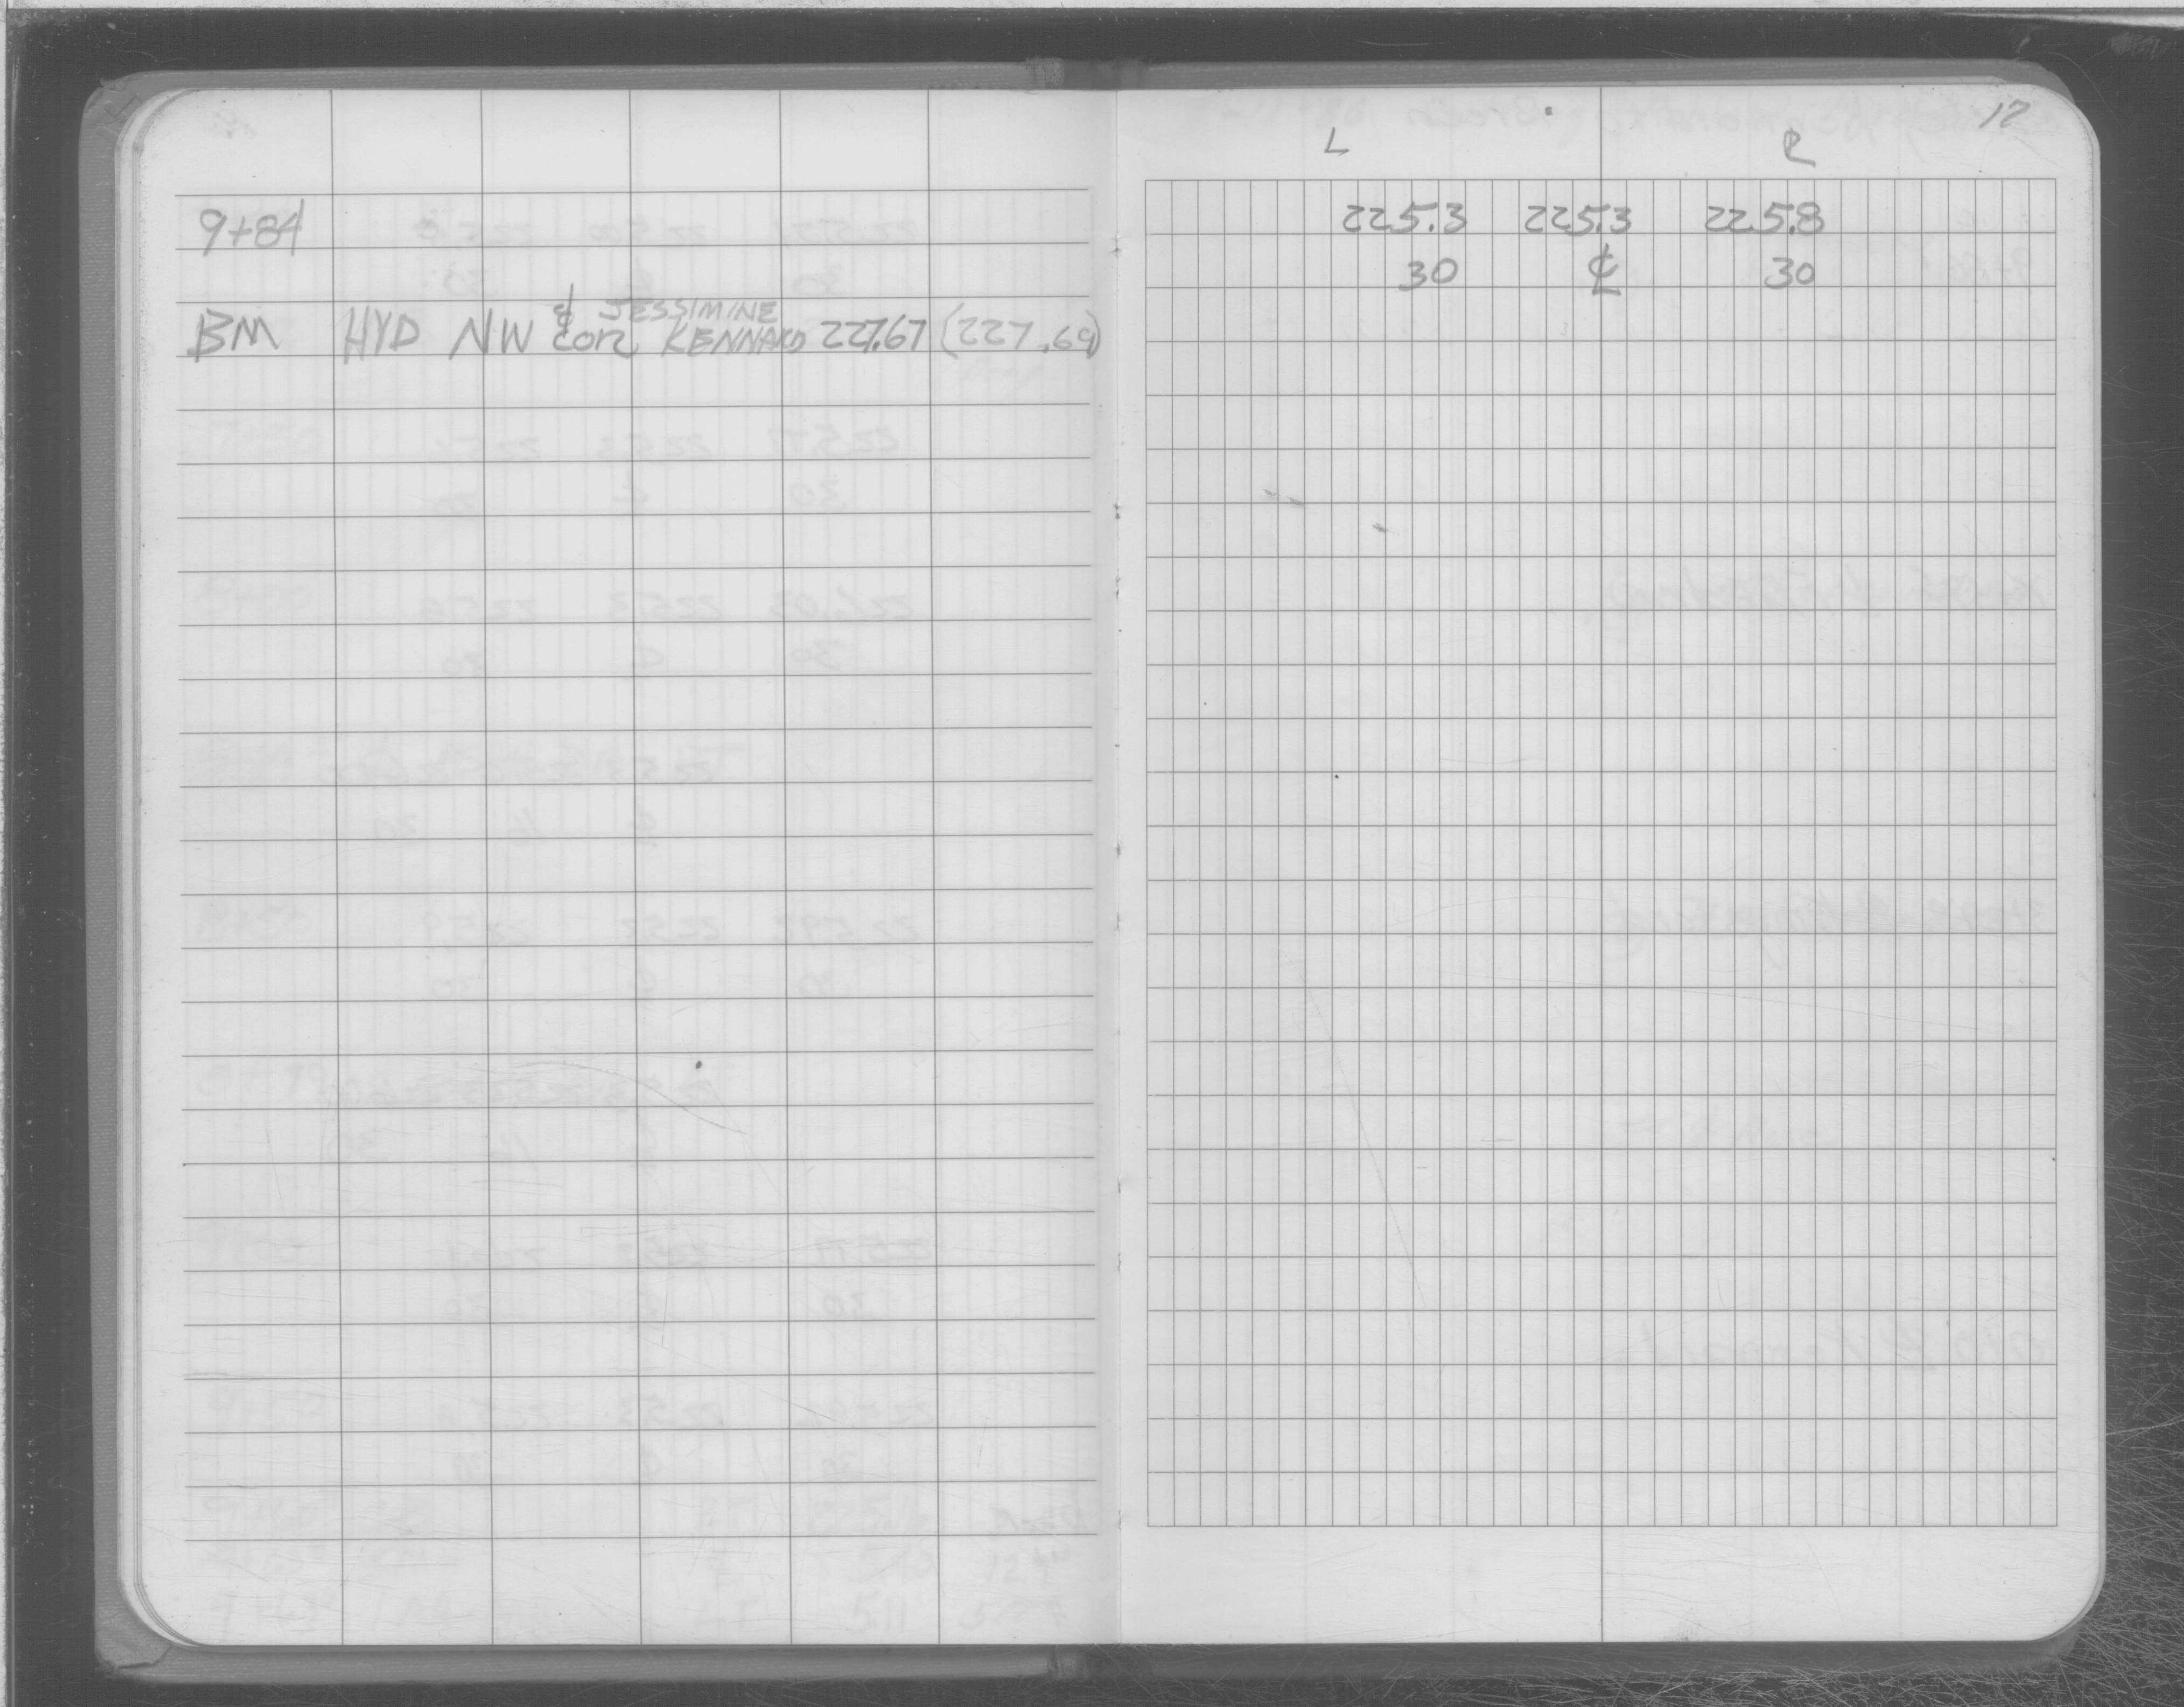 17
L R
9+84 225.3 225.3 225.8
30 ℄ 30
& JESSIMINE
BM HYD NW COR KENNARD 227.67 (227.69)